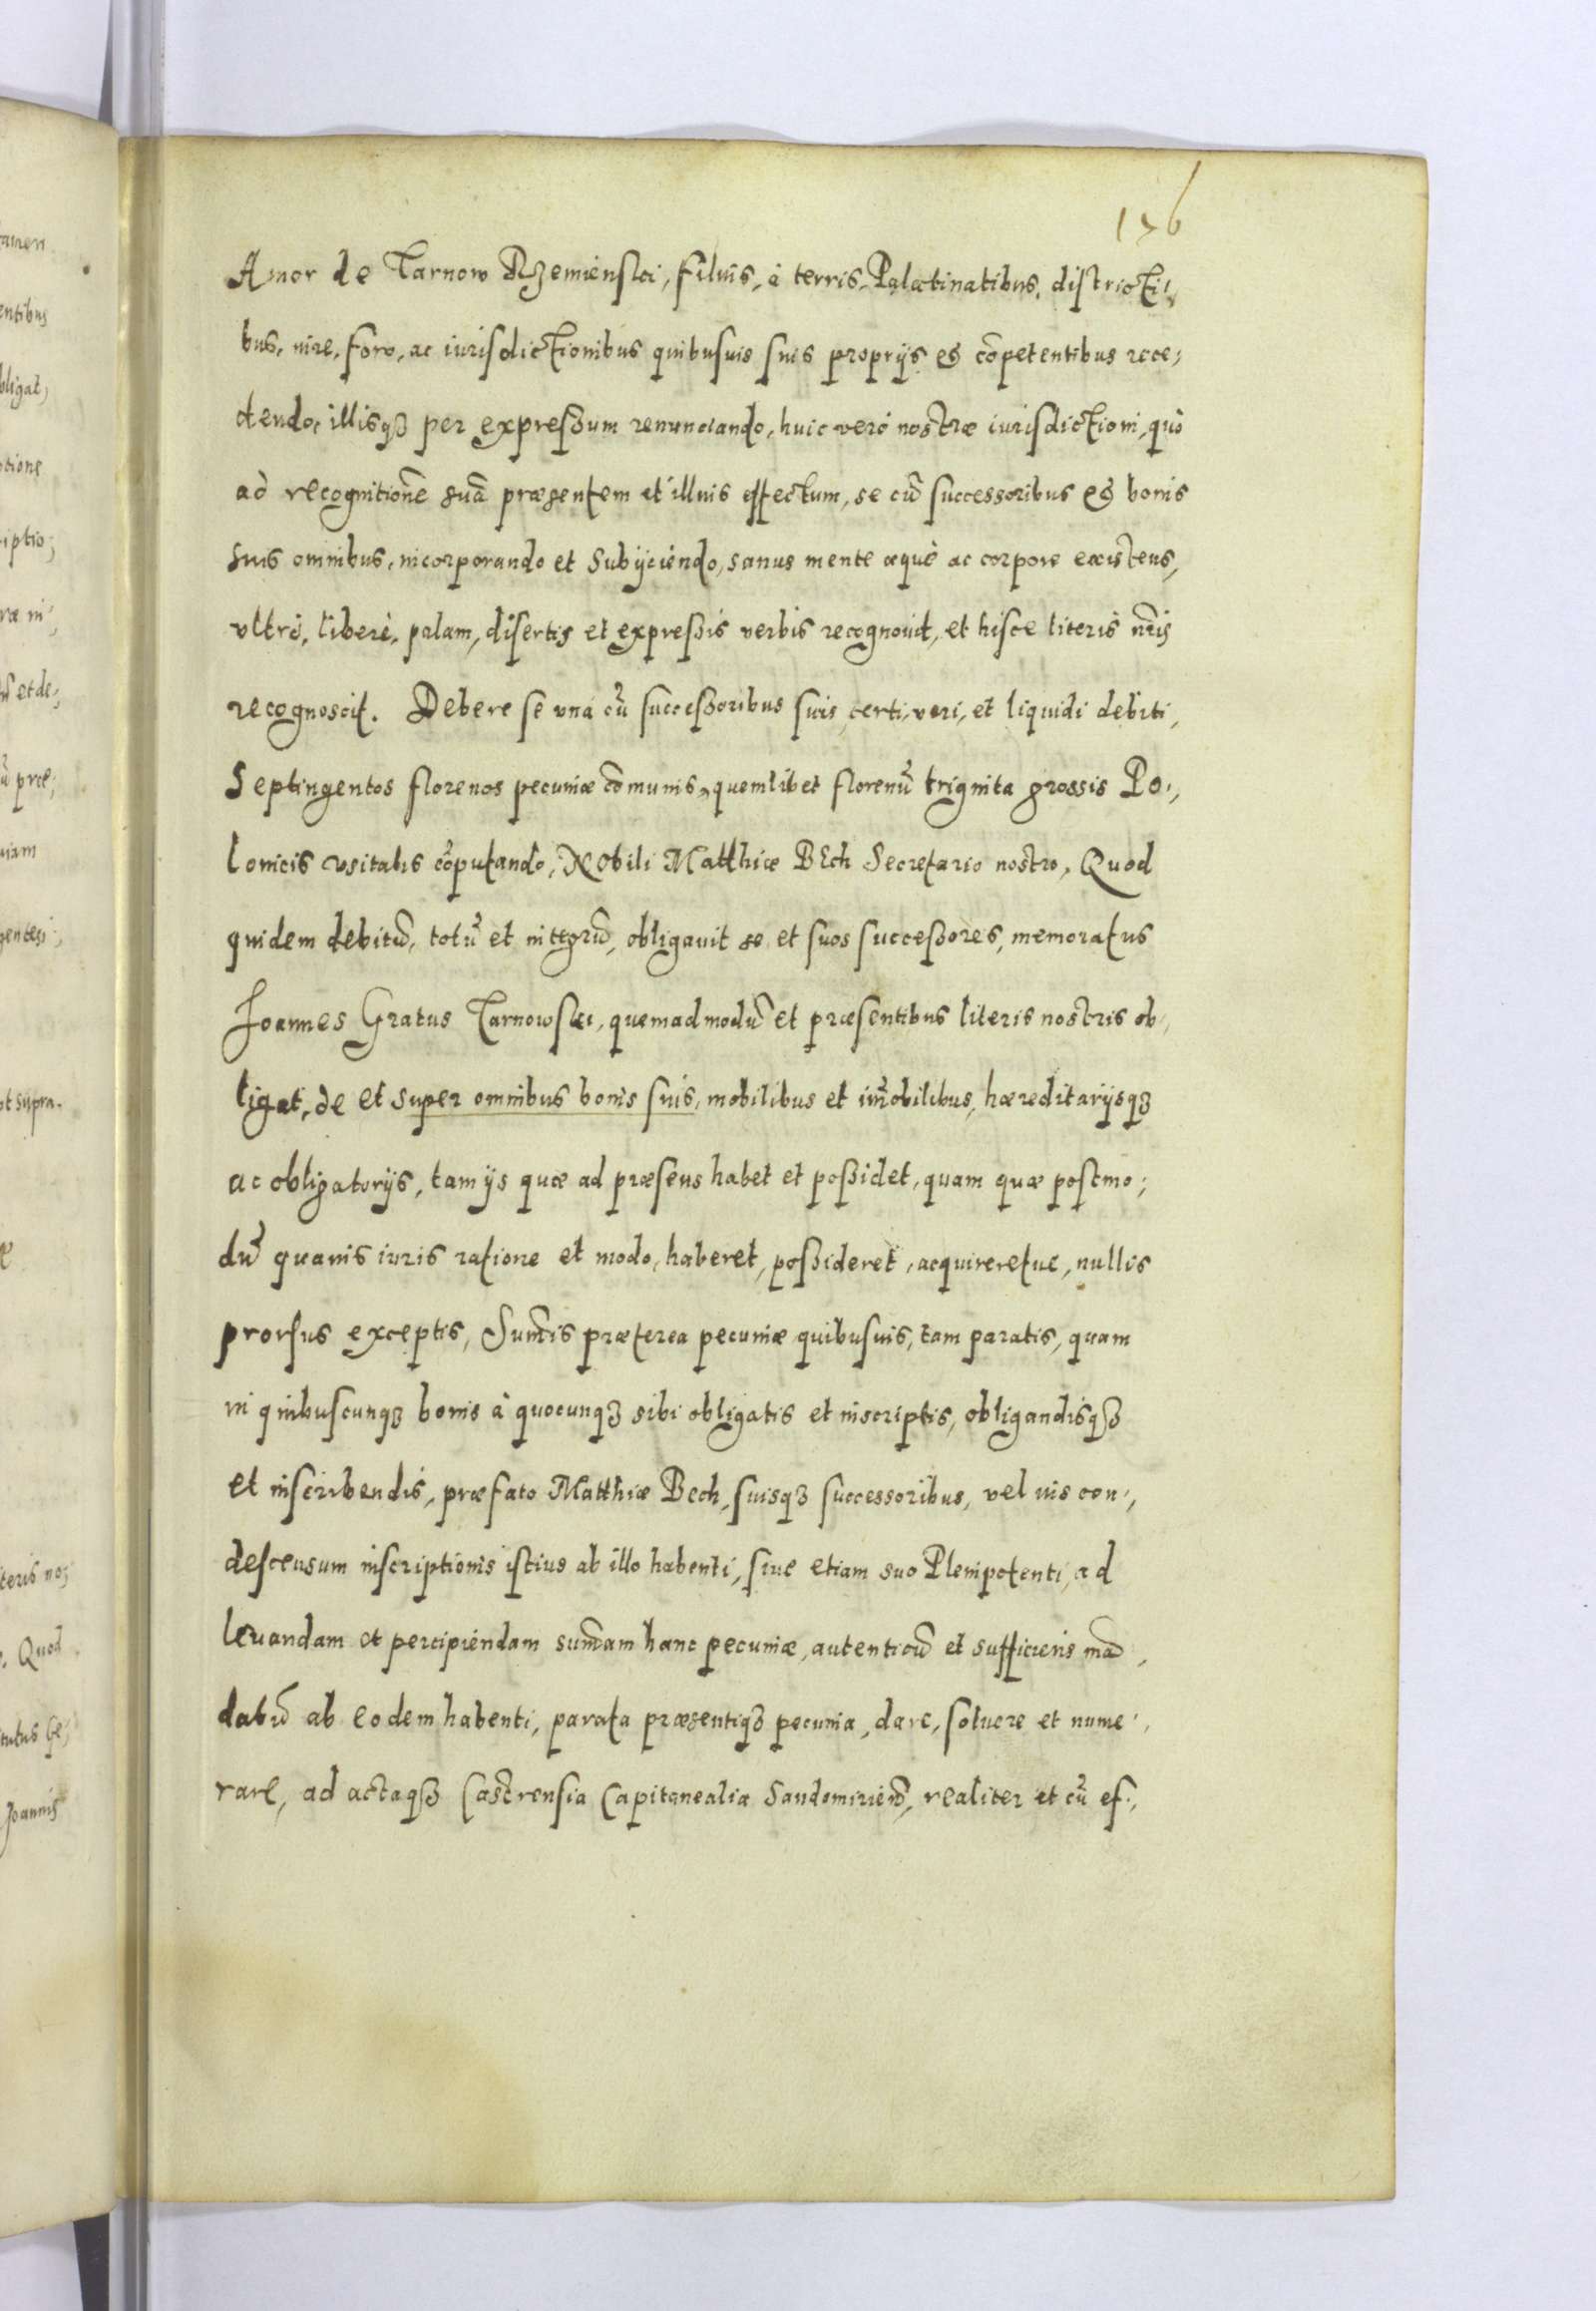 136
Amor de Tarnow Rzemienski, filius, à terris, Palatinatibus, districti,
bus, iure, foro, ac iurisdictionibus quibusuis suis proprijs et cõpetentibus rece,
dendo, illisqȝ per expreßum renunciando, huic verò nostræ iurisdictioni, quò
ad recognitionẽ suã præsentem et illius effectum, se cũ successoribus et bonis
suis omnibus, incorporando et Subijciendo, sanus mente æquè ac corpore existens,
vltrò, liberè, palam, disertis et expreßis verbis recognouit, et hisce literis nr̃is
recognoscit. Debere se vnà cũ succeßoribus suis, certi, veri, et liquidi debiti,
Septingentos florenos pecuniæ cõmunis, quemlibet florenũ triginta grossis Po,
lonicis vsitatis cõputando, Nobili Matthiæ Bech Secretario nostro, Quod
quidem debitũ, totũ et integrũ, obligauit se et suos succeßores, memoratus
Joannes Gratus Tarnowski, quemadmodũ et præsentibus literis nostris ob,
ligat, de et super omnibus bonis suis, mobilibus et im̃obilibus, hæreditarijsqȝ
ac obligatorijs, tam ijs quæ ad præsens habet et poßidet, quam quæ postmo,
dũ quauis iuris ratione et modo, haberet, poßideret, acquireretue, nullis
prorsus exceptis, Sum̃is præterea pecuniæ quibusuis, tam paratis, quam
in quibuscunqȝ bonis à quocunqȝ sibi obligatis et inscriptis, obligandisqȝ
et inscribendis, præfato Matthiæ Bech, suisqȝ successoribus, vel ius con,
descensum inscriptionis istius ab illo habenti, siue etiam suo Plenipotenti, ad
leuandam et percipiendam sum̃am hanc pecuniæ, autenticũ et sufficiens mã,
datũ ab eodem habenti, parata præsentiqȝ pecunia, dare, soluere et nume,
rare, ad actaqȝ Castrensia Capitanealia Sandomirieñ, realiter et cũ ef,